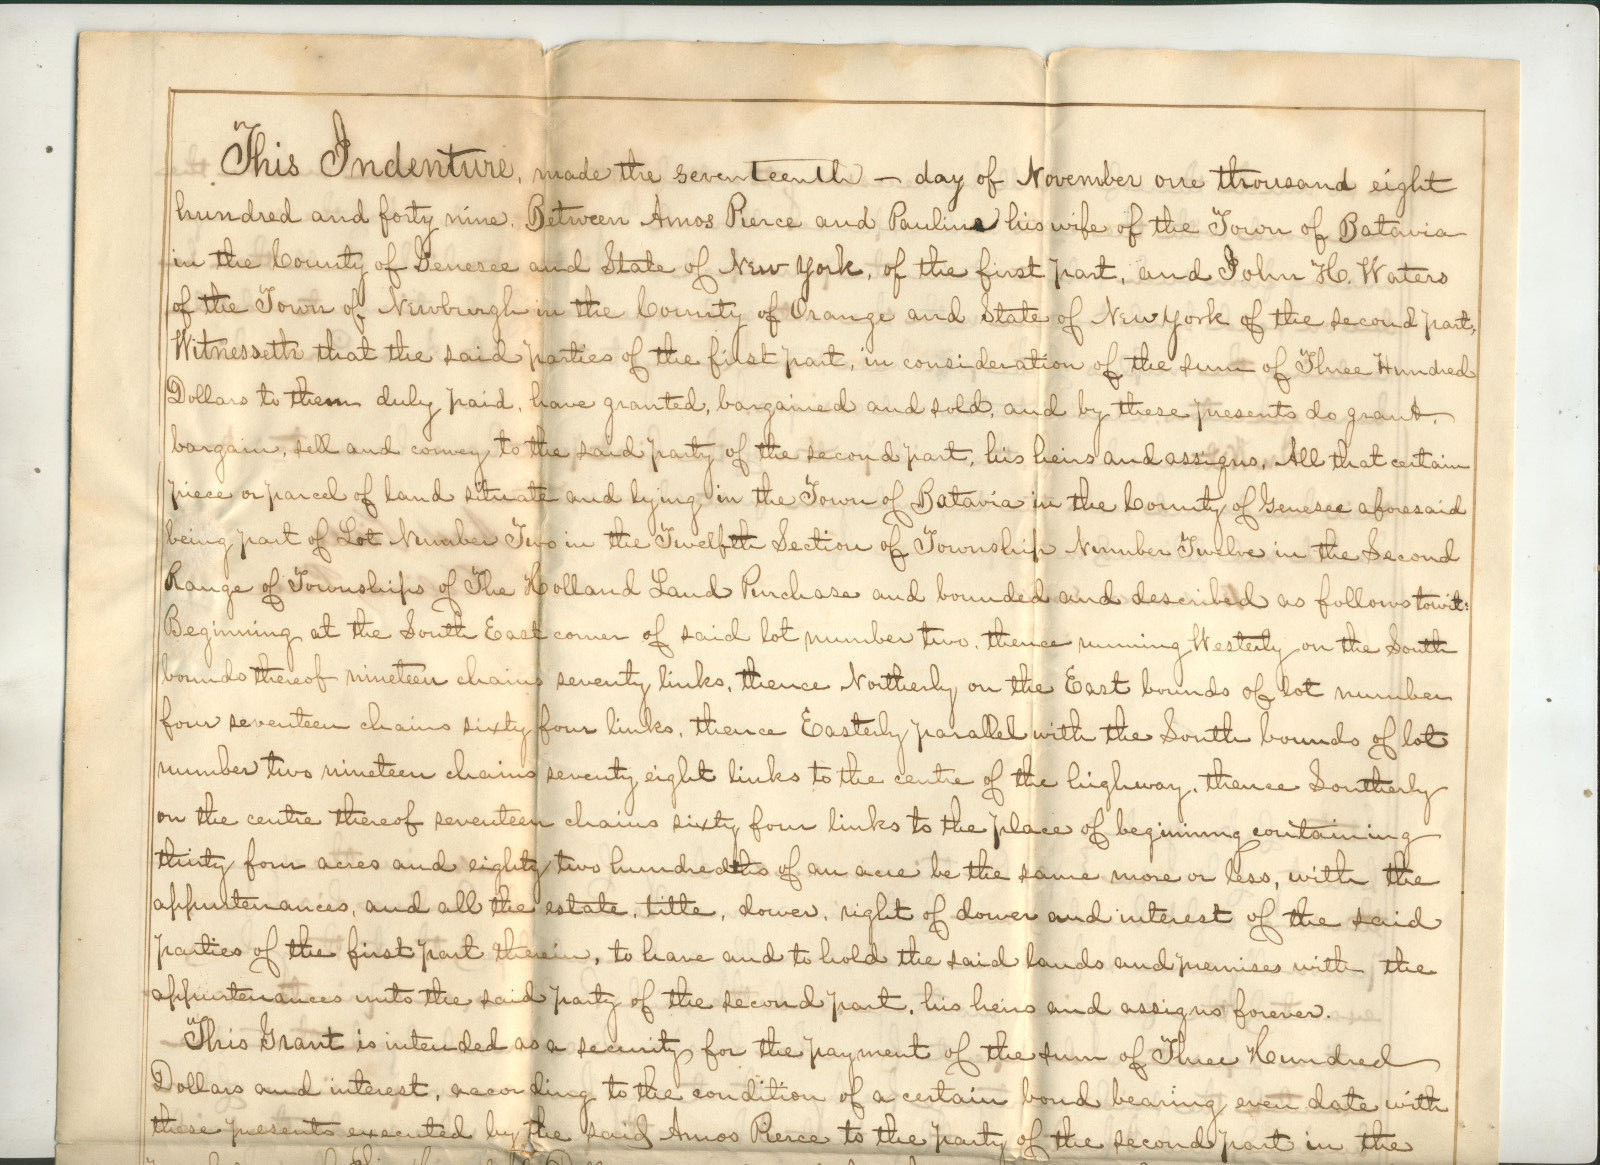 This Indenture, made the seventeenth — day of November one thousand eight
hundred and forty nine. Between Amos Pierce and Paulina his wife of the Town of Batavia
in the County of Genesee and State of New York, of the first part, and John H. Waters
of the Town of Newburgh in the County of Orange and State of New York of the second part,
Witnesseth that the said parties of the first part, in consideration of the sum of Three Hundred
Dollars to them duly paid, have granted, bargained and sold, and by these presents do grant,
bargain, sell and convey to the said party of the second part, his heirs and assigns, All that certain
piece or parcel of land situate and lying in the Town of Batavia in the County of Genesee aforesaid
being part of Lot Number Two in the Twelfth Section of Township Number Twelve in the Second
Range of Townships of The Holland Land Purchase and bounded and described as follows towit:
Beginning at the South East corner of said lot number two, thence running Westerly on the South
bounds thereof nineteen chains seventy links, thence Northerly on the East bounds of lot number
four seventeen chains sixty four links, thence Easterly parallel with the South bounds of lot
number two nineteen chains seventy eight links to the centre of the highway, thence Southerly
on the centre thereof seventeen chains sixty four links to the place of beginning containing
thirty four acres and eighty two hundredths of an acre be the same more or less, with the
appurtenances, and all the estate, title, dower, right of dower and interest of the said
parties of the first part therein, to have and to hold the said lands and premises with the
appurtenances unto the said party of the second part, his heirs and assigns forever.
This Grant is intended as a security for the payment of the sum of Three Hundred
Dollars and interest, according to the condition of a certain bond bearing even date with
these presents executed by the said Amos Pierce to the party of the second part in the